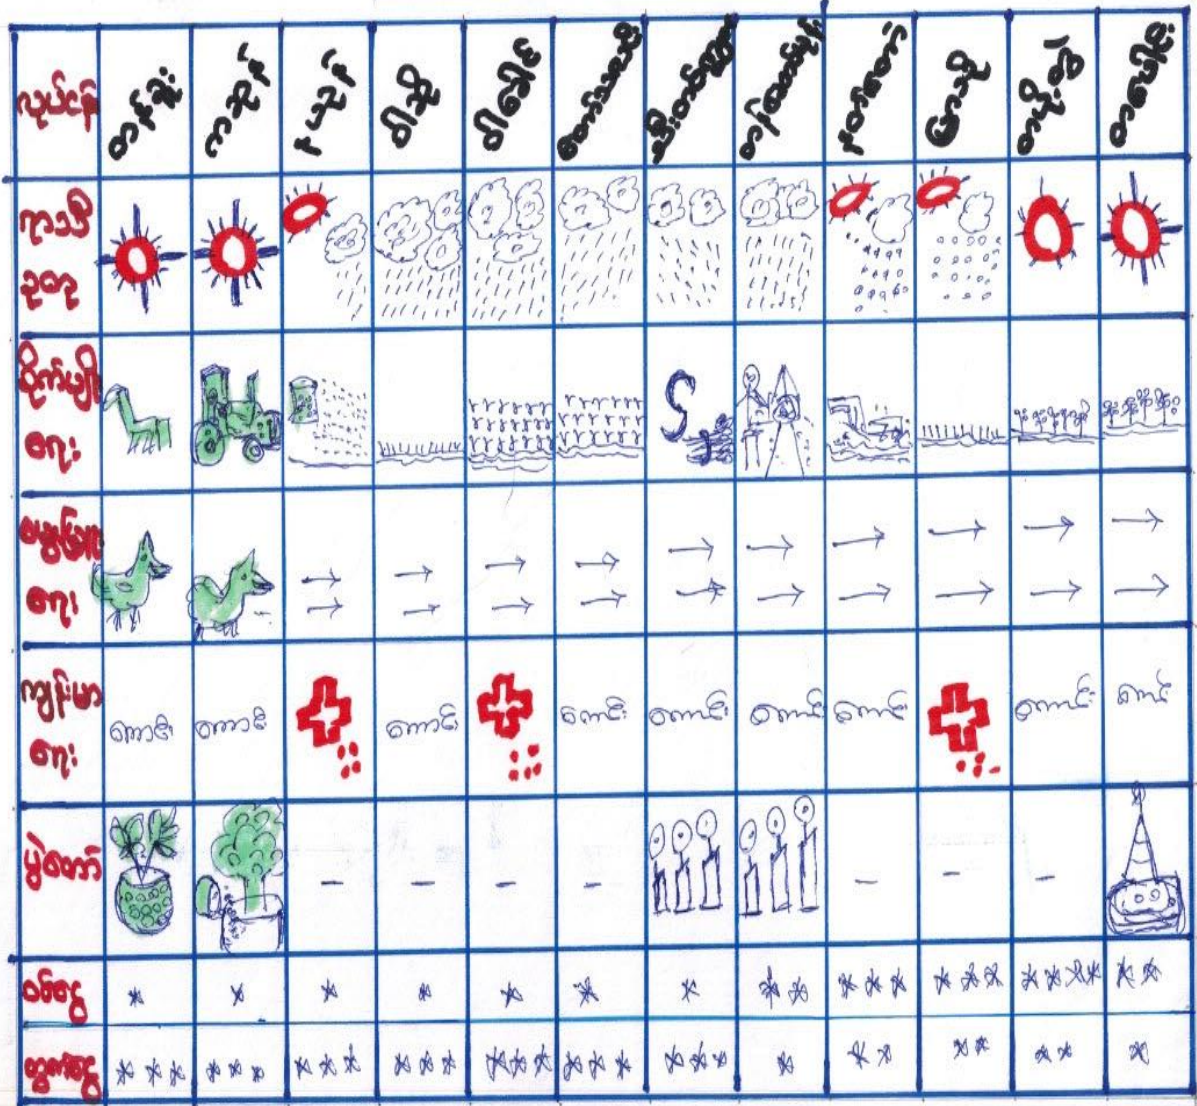 လုပ်ငန်း တန်ခူး ကဆုန် နယုန် ဝါဆို ဝါခေါင် တော်သလင်း သီးတင်းကျွတ် တန်ဆောင်မုန်း နတ်တော် ပြာသို တပို့တွဲ တပေါင်း
ရာသီ
ဥတု
စိုက်ပျိုး
ရေး
မွေးမြူ
ရေး
ကျန်းမာ
ရေး
ကောင်း ကောင်း ကောင်း ကောင်း ကောင်း ကောင်း ကောင်း ကောင်း ကောင်း
ပွဲတော်
ဝင်ငွေ
ထွက်ငွေ